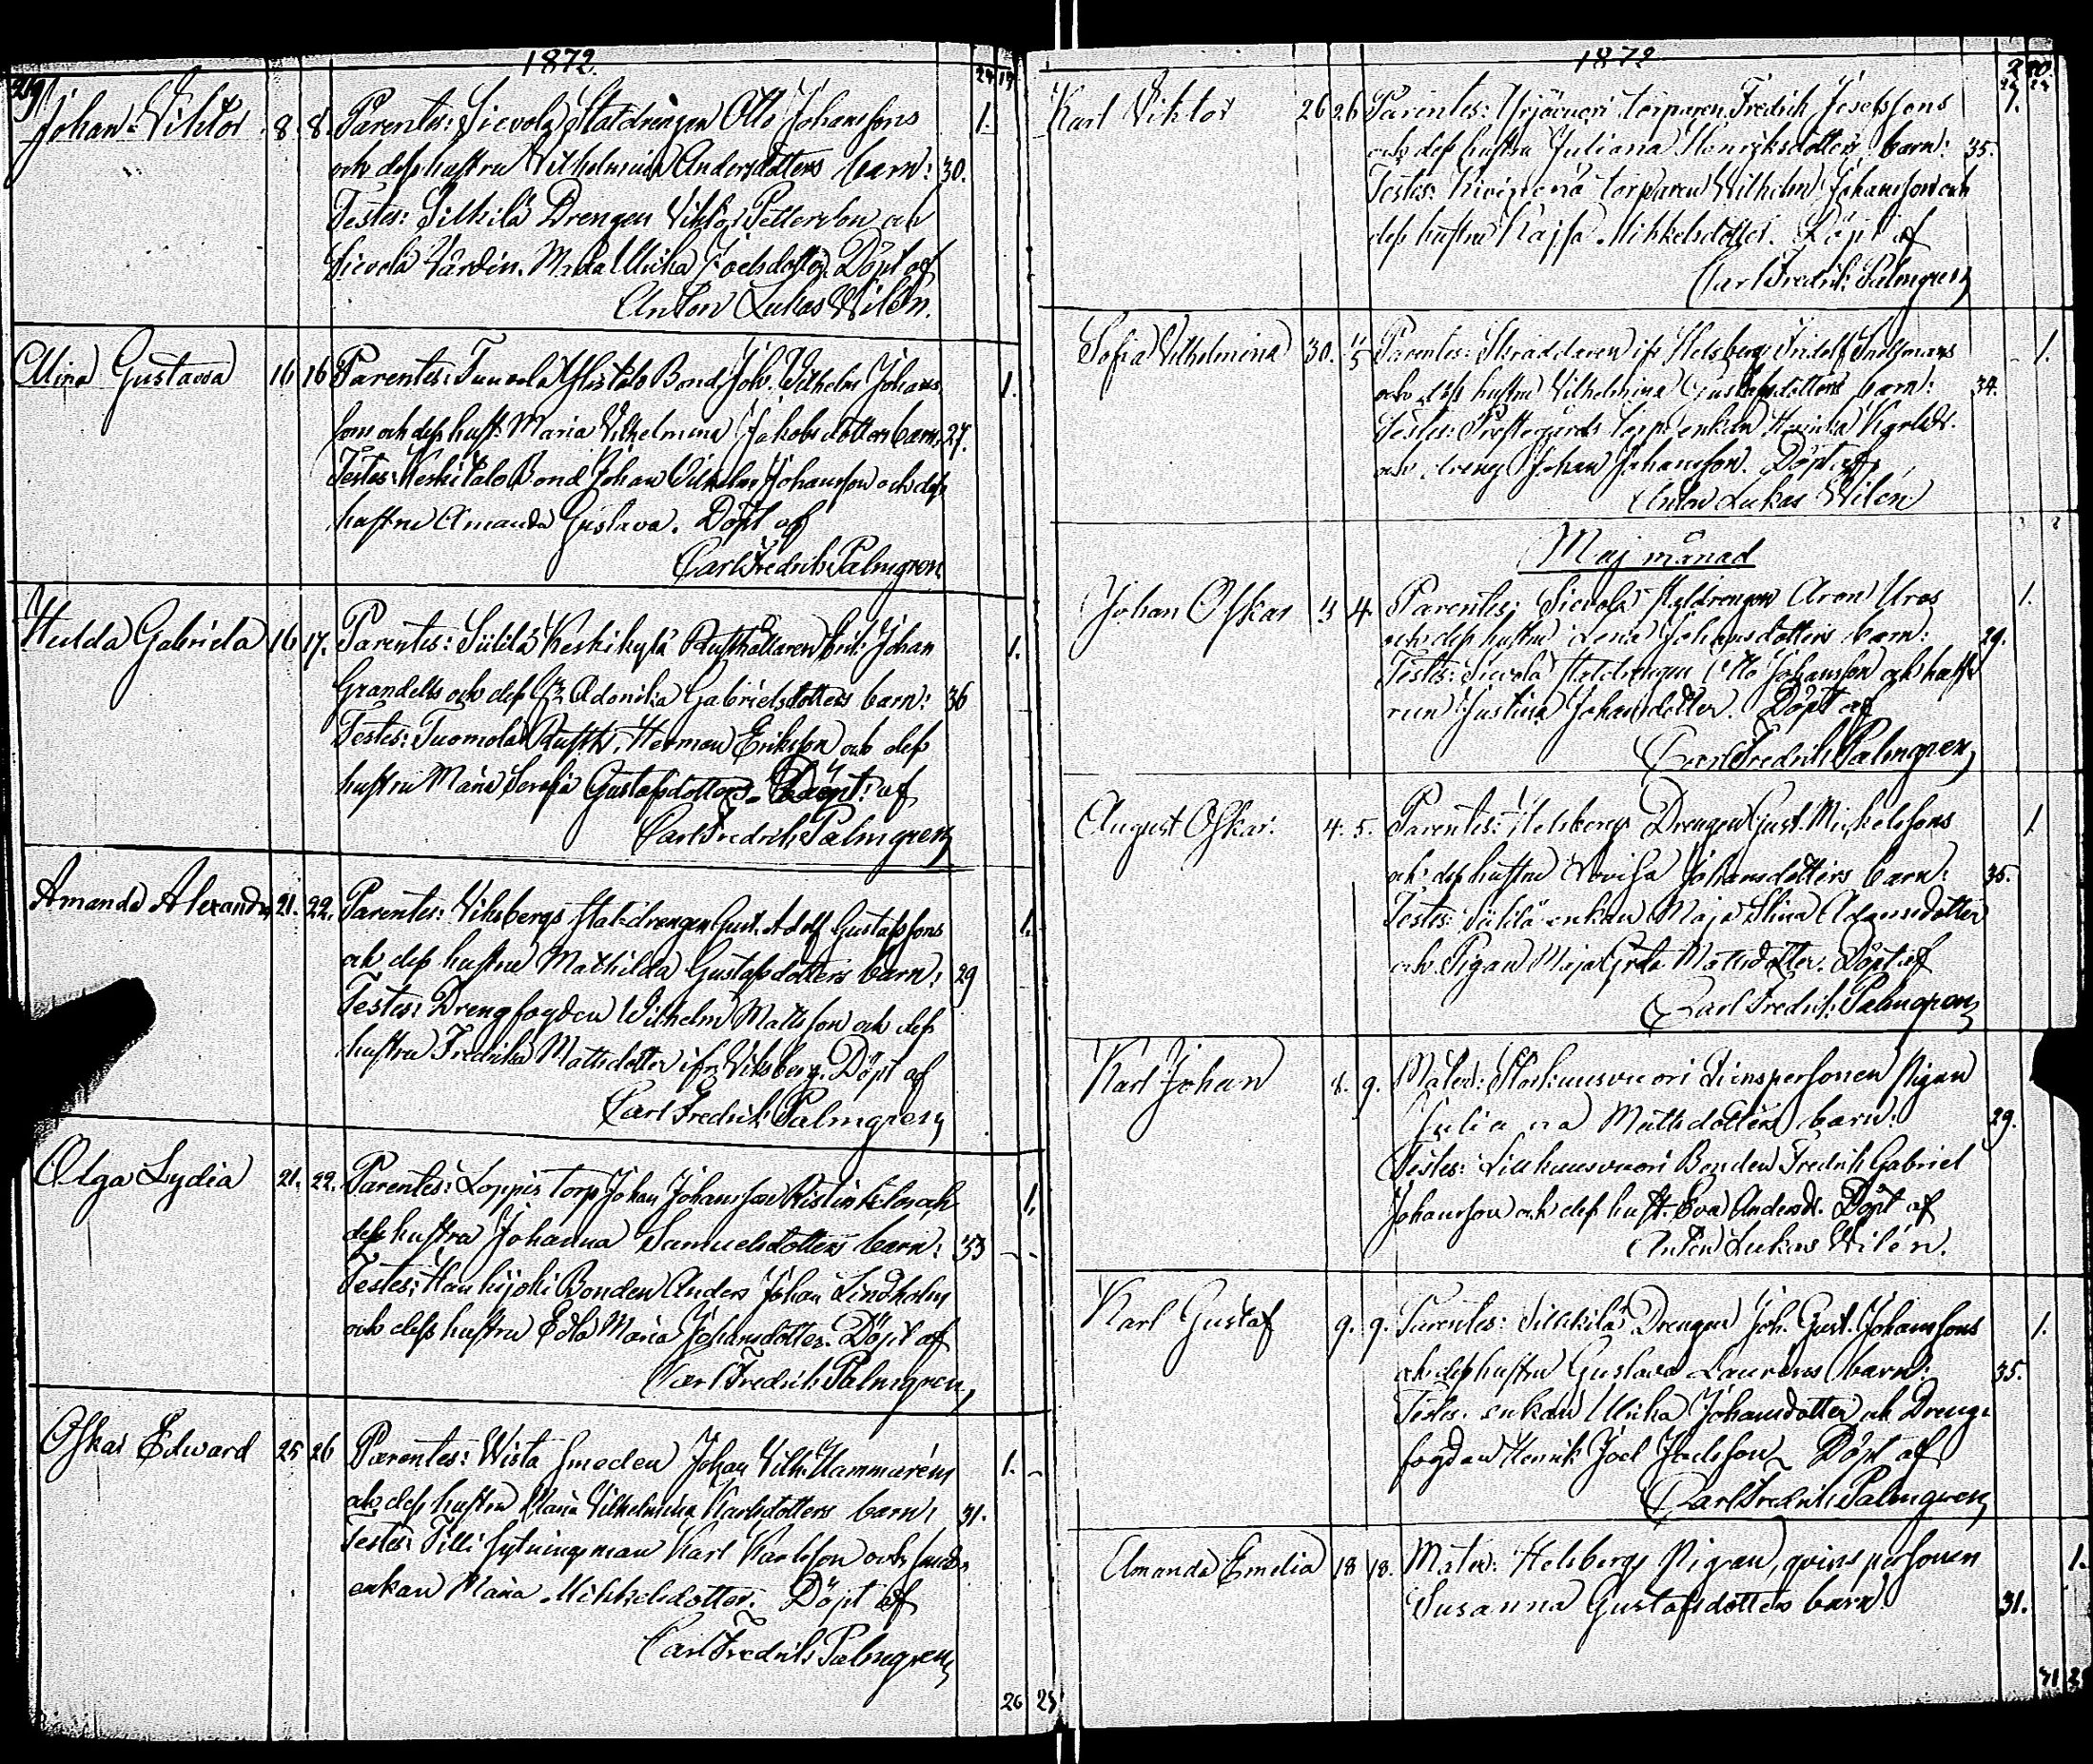 1872.
24 19
Johan Viktor 8. 8. Parentes: Sievola Statdrengen Otto Johanssons 1.
och dess hustru Vilhelmina Andersdotters barn: 30.
Testes: Drengen Viktor Pettersson och
Sievola Värdin. Ulrika Joelsdotter. Döpt af
Anton Lukas Wilén.
Gustava 16 16 Parentes: Bond. Joh. Wilhelm Johans 1.
son och dess hust. Maria Vilhelmina Jakobsdotters barn. 27.
Testes: Keskitalo Bond Johan Vilhelm Johansson och dess
hustru Amanda Gustava. Döpt af
Carl Fredrik Palmgren
Hulda Gabriela 16 17. Parentes: Keskikylä Rusthållaren Johan 1.
Grandells och dess Adonika Gabrielsdotters barn: 36
Testes: Tuomola Rusth. Herman Eriksson och dess
hustru Maria Serafia Gustafsdotter. Döpt: af
Carl Fredrik Palmgren
Amanda Alexandra 21. 22. Parentes: Viksbergs Statdrengen Gust. Adolf Gustafssons 1.
och dess hustru Mathilda Gustafsdotters barn: 29
Testes: Drengfogden Wilhelm Mattsson och dess
hustru Fredrika Mattsdotter ifr. Viksberg. Döpt af
Carl Fredrik Palmgren
Olga Lydia 21. 22. Parentes: Loppis torp. Johan Johansson och 1.
dess hustru Johanna Samuelsdotters barn: 33
Testes: Haukijoki Bonden Anders Johan Lindholm
och dess hustru Edla Maria Johansdotter. Döpt af
Carl Fredrik Palmgren
Oskar Edward 25 26 Parentes: Wista Smeden Johan Vilh. Hammaréns 1.
och dess hustru Maria Vilhelmina Karlsdotters barn: 31.
Testes: Tilli Sytningsman Karl Karlsson och
enkan Maria Mikkelsdotter. Döpt af
Carl Fredrik Palmgren
26
1872
Karl Viktor 26 26 Parentes: torparen Fredrik Josefssons 1.
och dess hustru Juliana Henriksdotters barn: 35.
Testes: torparen Wilhelm Johansson och
dess hustru Kajsa Mikkelsdotter. Döpt af
Carl Fredrik Palmgren
Sofia Vilhelmina 30. 5 Parentes: Skräddaren ifr. Helsberg Fridolf 1.
och dess hustru Vilhelmina Gustafsdotters barn: 34.
Testes: Prestegårds torp. enkan
och dreng Johan Johansson. Döpt af
Anton Lukas Wilén
Maj månad
Johan Oskar 3 4. Parentes: Sievola Statdrengen Aron Uros 1.
och dess hustru Lena Johansdotters barn: 29.
Testes: Sievola Statdrengen Otto Johansson och hust
run Justina Johansdotter. Döpt af
Carl Fredrik Palmgren
August Oskar. 4. 5. Parentes: Helsbergs Drengen Gust. Mickelssons 1.
och dess hustru Lovisa Johansdotters barn: 35.
Testes: enkan Maja Stina Adamsdotter
och Pigan Maja Greta Mattsdotter. Döpt af
Carl Fredrik Palmgren
Karl Johan 8. 9. Mater: Qvinspersonen Pigan
Juliana Mattsdotters barn: 29.
Testes: Bonden Fredrik Gabriel
Johansson och dess hust. Eva Andersd. Döpt af
Anton Lukas Wilén.
Karl Gustaf 9. 9. Parentes: Drengen Joh. Gust. Johanssons 1.
och dess hustru Gustava Lauréns barn: 35.
Testes: enkan Ulrika Johansdotter och Dreng
fogden Henrik Joel Döpt af
Carl Fredrik Palmgren
Amanda Emelia 18 18. Mater: Helsbergs Pigan, qvinspersonen 1.
Susanna Gustafsdotters barn: 31.
31